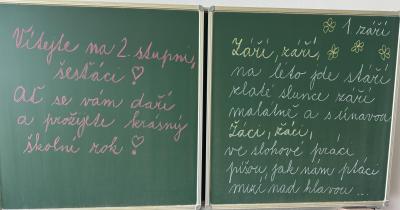 Vítejte na 2. stupni,
šesťáci ♡
Ať se vám daří
a prožijete krásný
školní rok ♡!
1. září
Září, září,
na léto jde stáří
zlaté slunce září
malátně a s únavou
Žáci, žáci,
ve slohové práci
píšou, jak nám ptáci
mizí nad hlavou...